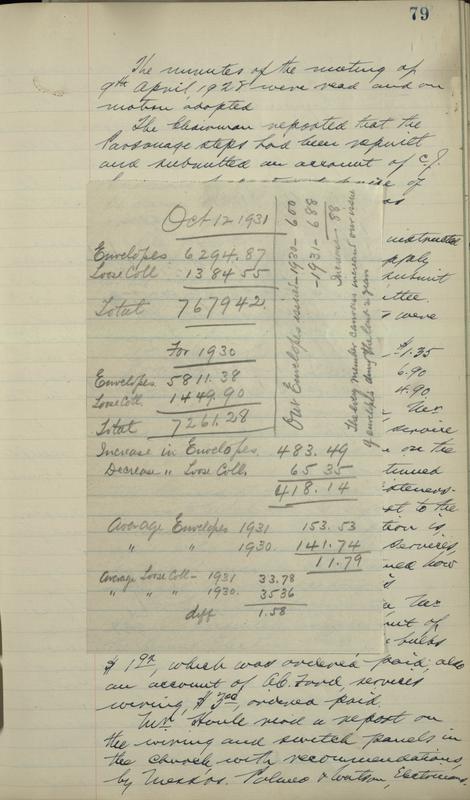 79
The minutes of the meeting of
9th April 1928 were read and on
motion adopted
The Chairman reported that the
Parsonage steps had been rebuilt
and submitted an account of C. J.
of
as
Oct 12 1931
Envelopes 6294.87
Loose Coll 1384 55
Total 767942
For 1930
Envelopes 5811.38
Loose Coll. 1449.90
Total 7261.28
Increase in Envelopes 483.49
Decrease " Loose Coll, 65 35
418.14
Average Envelopes 1931 153.53
" " 1930. 141.74
11.79
Average Loose Coll - 1931 33.78
" " " 1930. 3536
diff 1.58
Our Envelopes issued - 1930 - 600
- 1931 - 688
Increase 88
The every member canvass increased our issue
of envelopes during the last year
instructed
submit
were
$1.35
6.90
4.90
Mr.
service
on the
to the
is
services,
now
Mr
of
bulbs
$ 1.92, which was ordered paid, also
an account of A.C. Ford, services
wiring, ordered paid.
Mr. Houle read a report on
the wiring and switch panels in
the church, with recommendations,
by Messrs. & Watson, Electricians